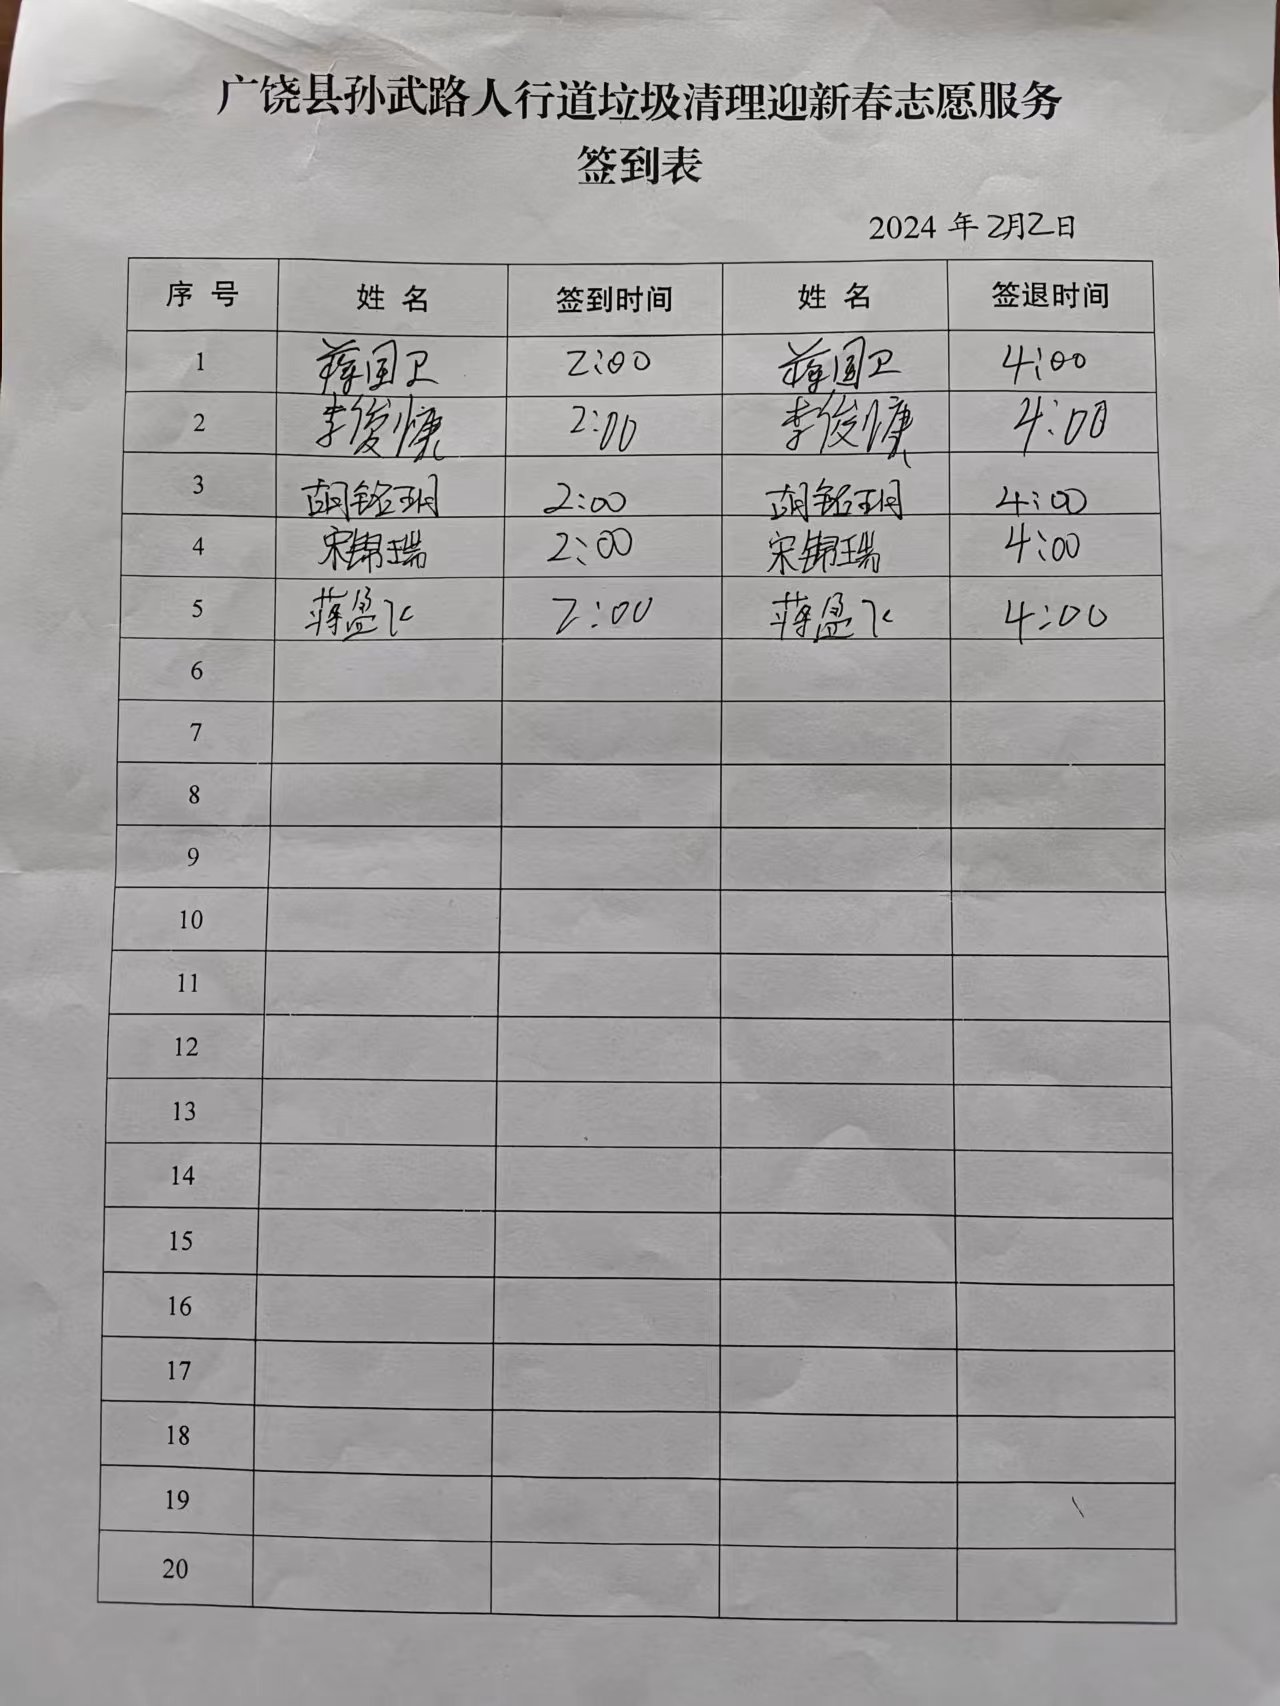 广饶县孙武路人行道垃圾清理迎新春志愿服务
签到表
2024 年 2月2日
序 号 姓 名 签到时间 姓 名 签退时间
1 蒋国卫 2:00 蒋国卫 4:00
2 李俊慷 2:00 李俊慷 4:00
3 胡铭玥 2:00 胡铭玥 4:00
4 宋锦瑞 2:00 宋锦瑞 4:00
5 蒋盈飞 2:00 蒋盈飞 4:00
6
7
8
9
10
11
12
13
14
15
16
17
18
19
20